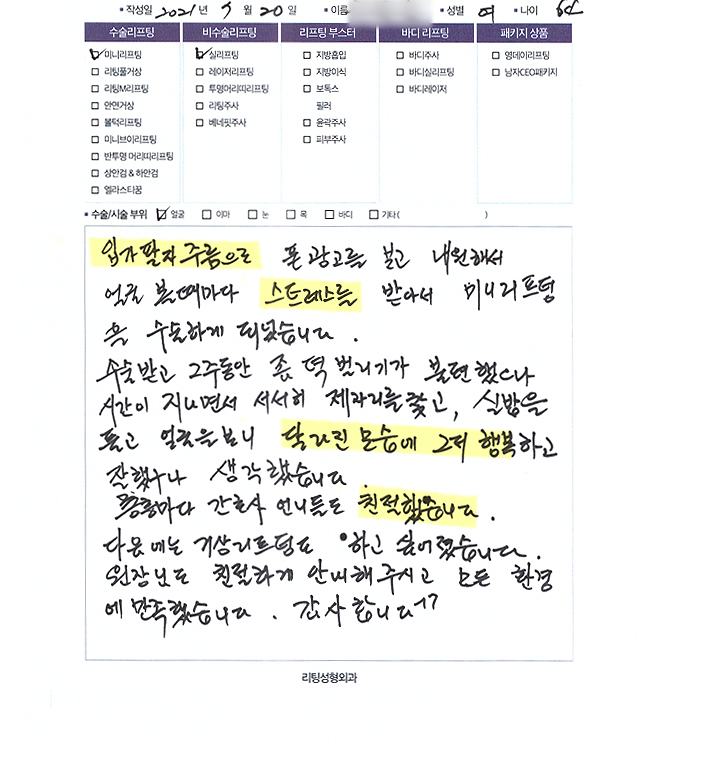 작성일 2021년 7월 20일 이름 성별 여 나이 64
수술리프팅 비수술리프팅 리프팅 부스터 바디 리프팅 패키지 상품
미니리프팅 실리프팅 지방흡입 바디주사 영데이리프팅
리팅풀거상 레이저리프팅 지방이식 바디실리프팅 남자CEO패키지
리팅M리프팅 투명머리띠리프팅 보톡스 바디레이저
안면거상 리팅주사 필러
볼턱리프팅 베네핏주사 윤곽주사
미니브이리프팅 피부주사
반투명 머리띠리프팅
상안검 & 하안검
엘라스티꿈
수술/시술 부위 얼굴 이마 눈 목 바디 기타( )
입가 팔자 주름으로 폰 광고를 보고 내원해서
얼굴 볼때마다 스트레스를 받아서 미니리프팅
을 수술하게 되었습니다.
수술받고 2주동안 좀 턱 벌리기가 불편했으나
시간이 지나면서 서서히 제자리를 찾고, 실밥을
풀고 얼굴을 보니 달라진 모습에 그저 행복하고
잘했구나 생각했습니다
층층마다 간호사 언니들도 친절했습니다.
다음에는 거상리프팅도 하고 싶어졌습니다.
원장님도 친절하게 안내해주시고 모든 환경
에 만족했습니다. 감사합니다
리팅성형외과